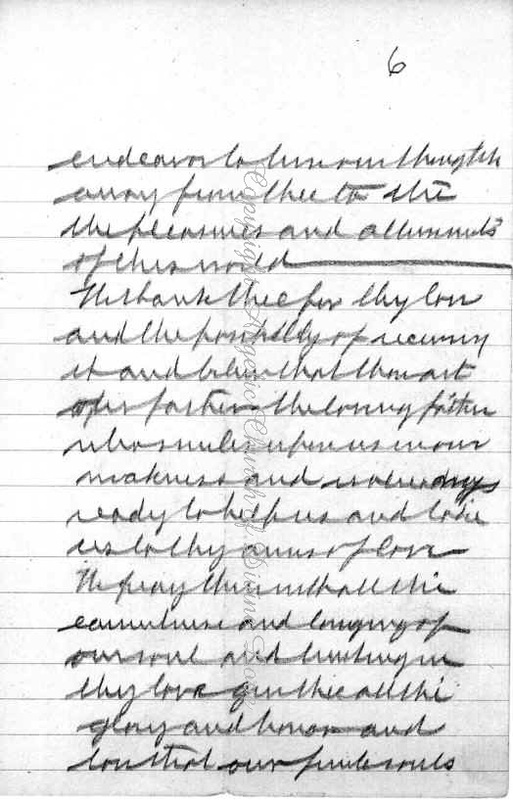 6
endeavor to turn our thoughts
away from thee to the
the pleasures and allurements
of this world
We thank thee for thy love
and the possibility of receiving
it and believe that thou art
our father the loving father
who smiles upon us in our
weakness and is always
ready to help us and take
us to thy arms of love
We pray thus with all the
earnestness and longing of
our soul and trusting in
thy love give thee all the
glory and honor and
love that our finite souls
Copyright Angelic Church of Divine Love